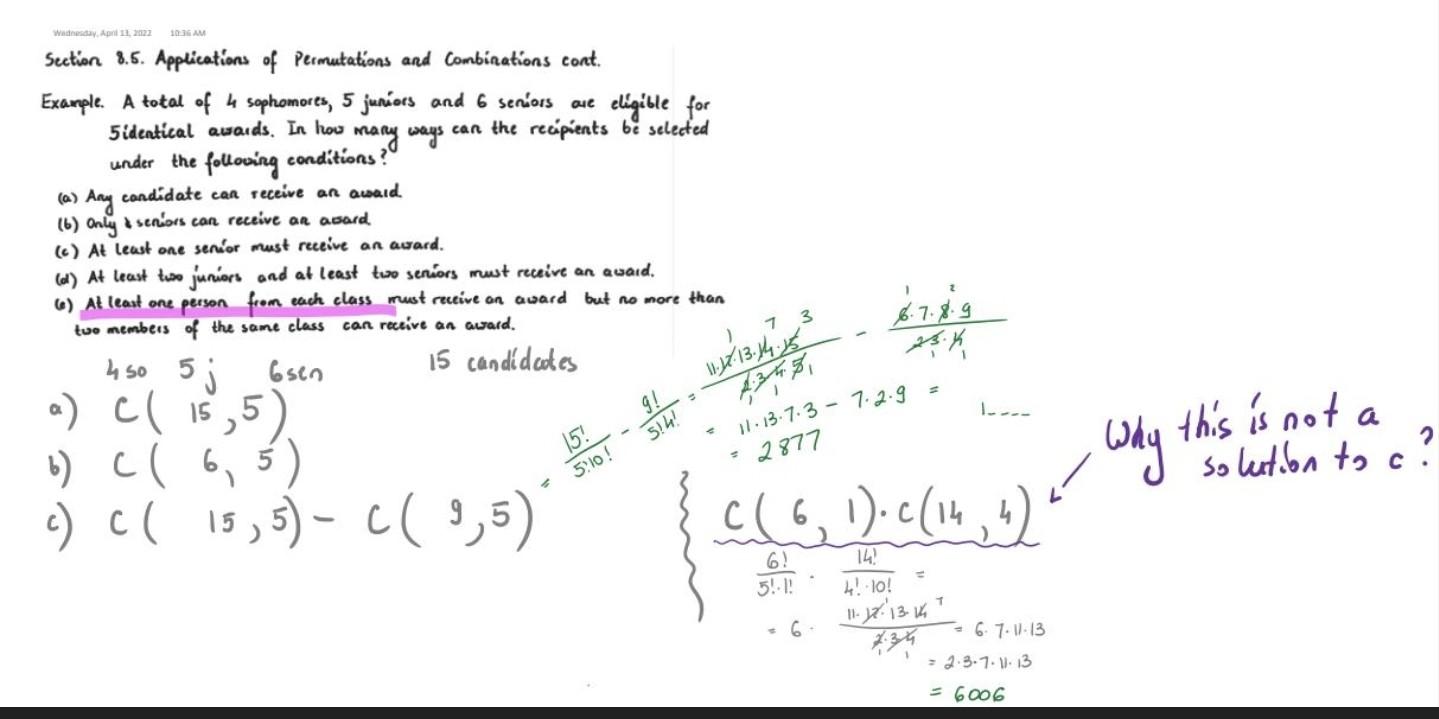 Wednesday, April 13, 2022 10:36 AM
Section 8.5. Applications of Permutations and Combinations cont.
Example. A total of 4 sophomores, 5 juniors and 6 seniors are eligible for
5 identical awards. In how many ways can the recipients be selected
under the following conditions?
(a) Any candidate can receive an award.
(b) Only seniors can receive an award.
(c) At least one senior must receive an award.
(d) At least two juniors and at least two seniors must receive an award.
(e) At least one person from each class must receive an award but no more than
two members of the same class can receive an award.
4 so 5 j 6 sen 15 candidates
a) C( 15, 5)
b) C( 6, 5)
c) C( 15, 5) - C( 9, 5)
= 15!/5!10! - 9!/5!4! = 11·12·13·14·15/2·3·4·5 - 6·7·8·9/2·3·4
1 7 3
1 1 1
1 2
1 1
= 11·13·7·3 - 7·2·9 =
1----
= 2877
C( 6, 1)·C(14, 4)
Why this is not a
solution to c?
6!/5!·1! · 14!/4!·10! =
= 6· 11·12·13·14/2·3·4 = 6·7·11·13
1 7
1 1
= 2·3·7·11·13
= 6006